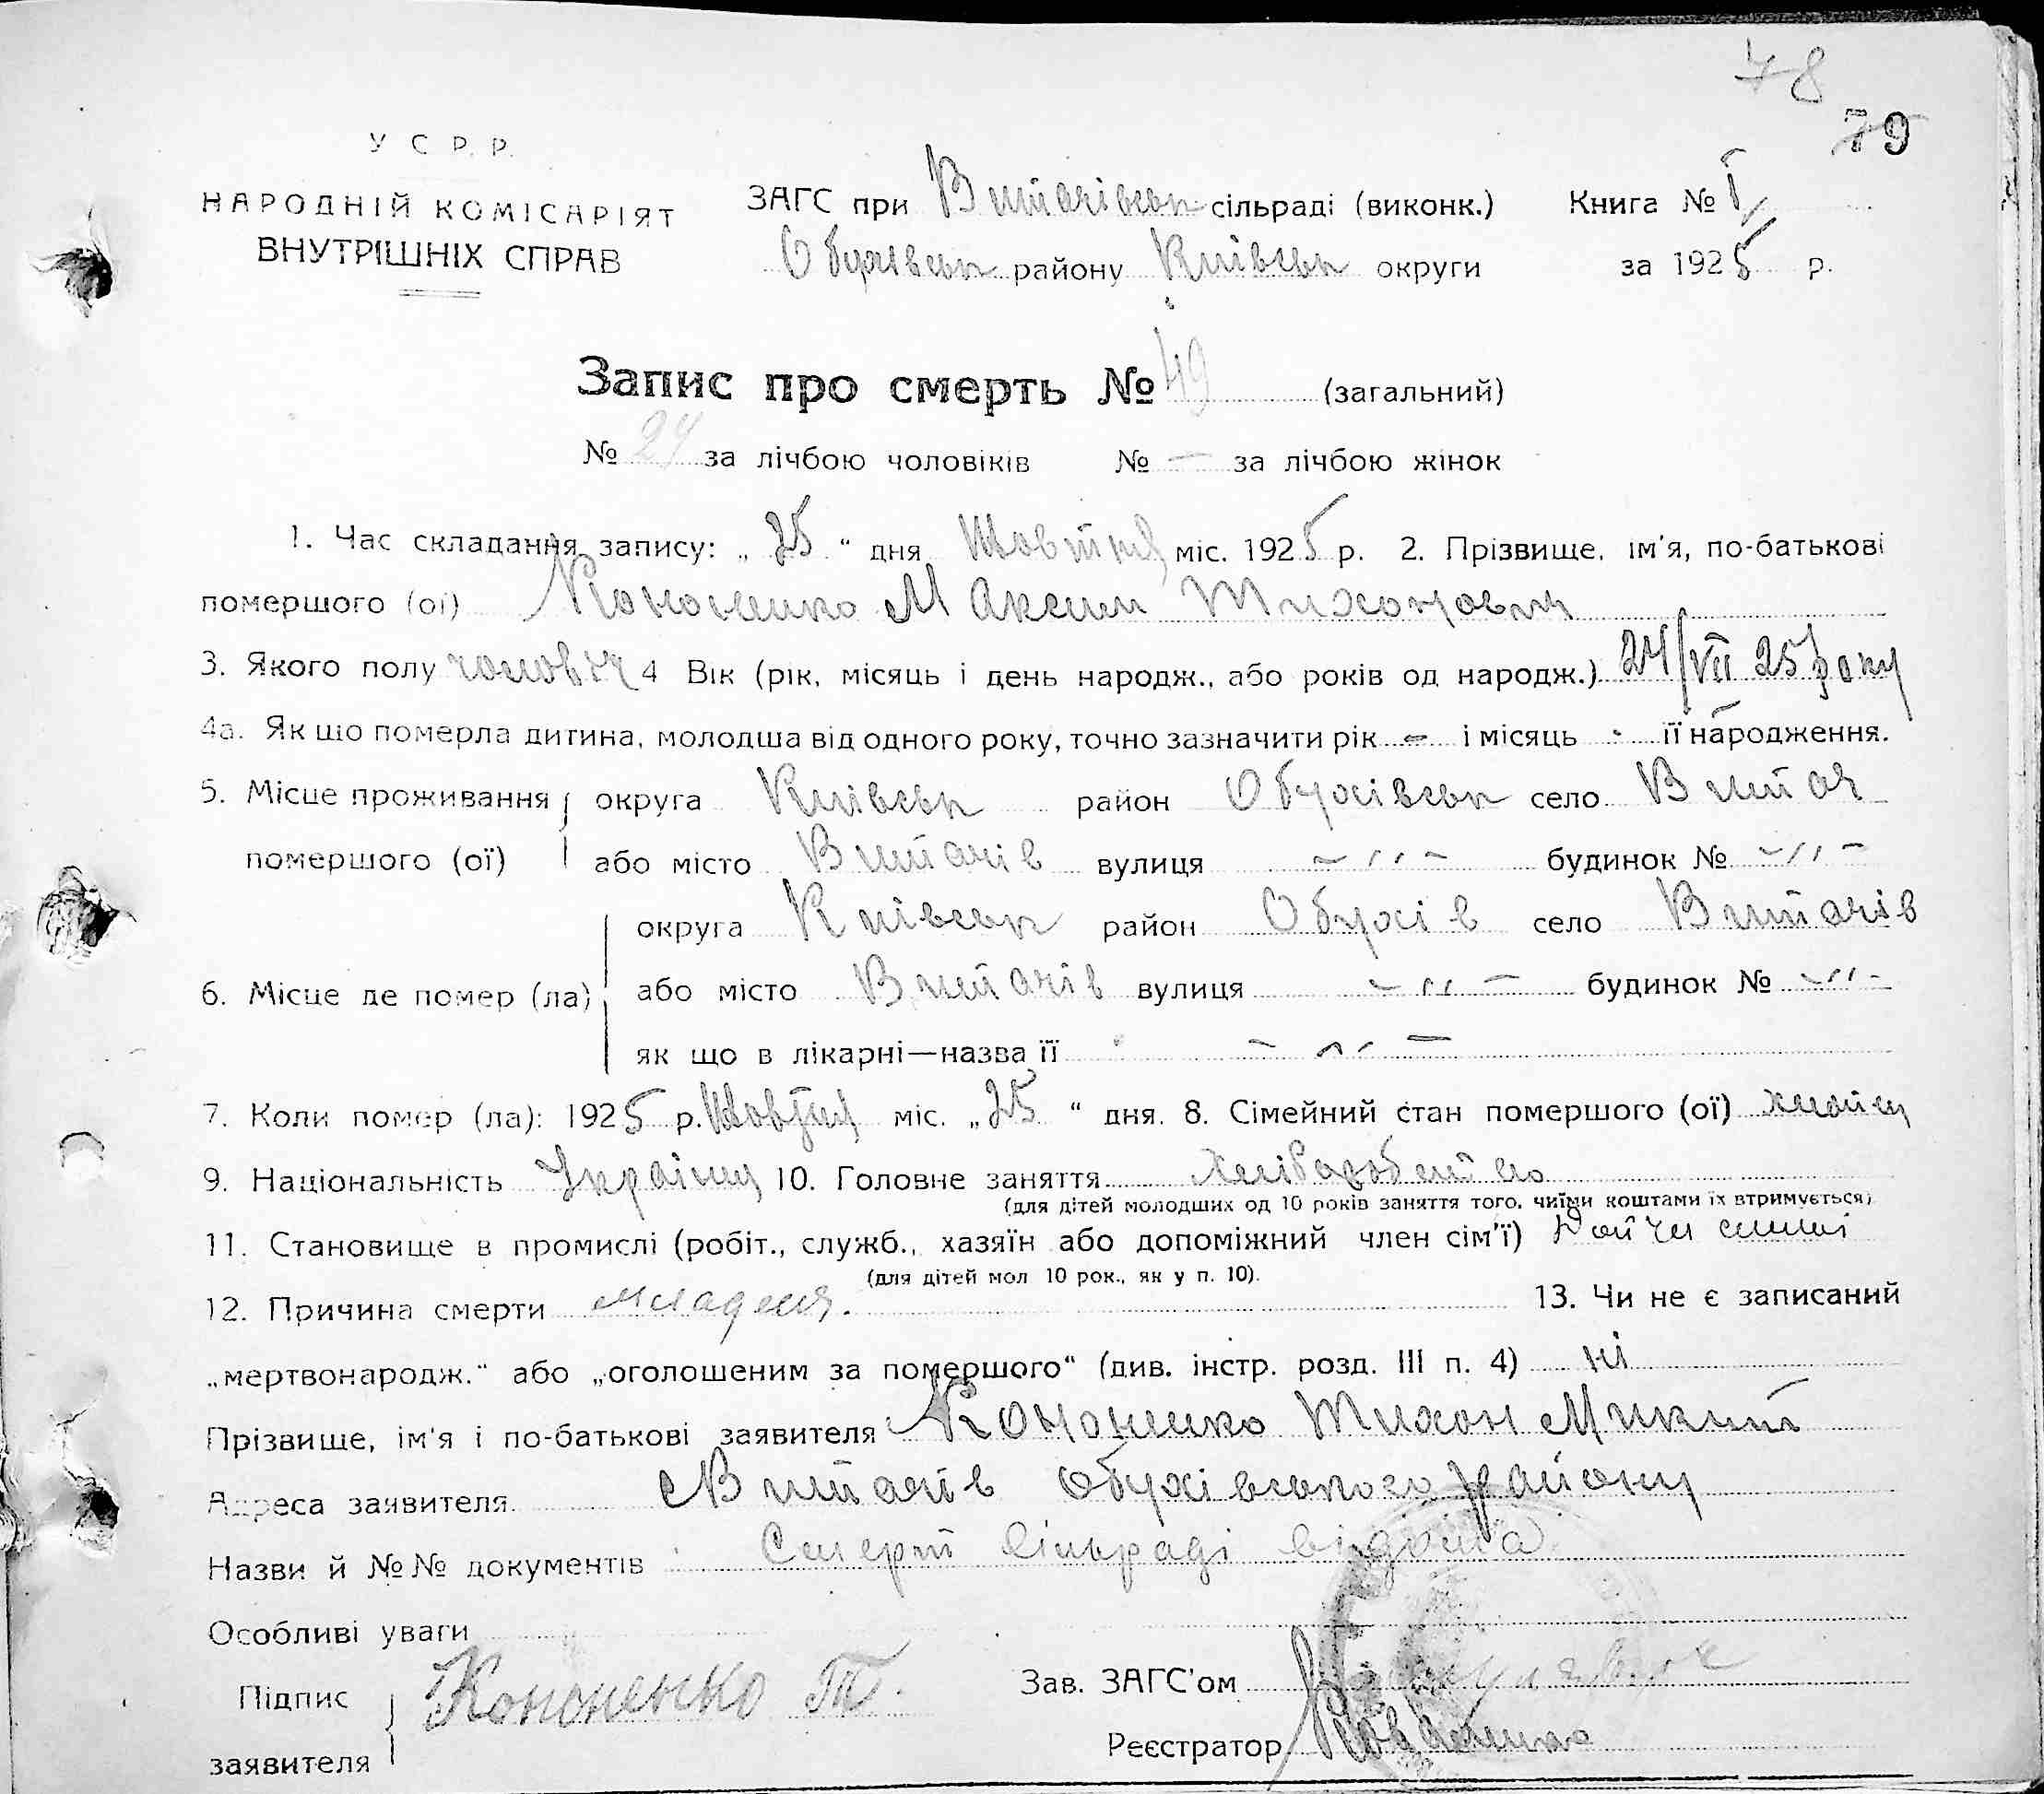 78
79
У С Р. Р.
НАРОДНІЙ КОМІСАРІЯТ
ВНУТРІШНІХ СПРАВ
ЗАГС при Витачівськ сільраді (виконк.) Книга № I
Обухівськ району Київськ округи за 1925 р.
Запис про смерть № 49 (загальний)
№ 24 за лічбою чоловіків № — за лічбою жінок
1. Час складання запису: „ 25 “ дня Жовтня міс. 1925 р. 2. Прізвище, ім'я, по-батькові
помершого (ої) Кононенко Максим Тихонович
3. Якого полу чоловіч 4 Вік (рік, місяць і день народж., або років од народж.) 24/VII 25 року
4а. Як що померла дитина, молодша від одного року, точно зазначити рік – і місяць - її народження.
5. Місце проживання округа Київськ район Обухівськ село Витач
помершого (ої) або місто Витачів вулиця – „ – будинок № – „ –
округа Київськ район Обухів село Витачів
6. Місце де помер (ла) або місто Витачів вулиця – „ – будинок № – „ –
як що в лікарні—назва її – „ –
7. Коли помер (ла): 1925 р. Жовтня міс. „ 25 “ дня. 8. Сімейний стан помершого (ої)
9. Національність Україець 10. Головне заняття Хліборобство
(для дітей молодших од 10 років заняття того, чиїми коштами їх втримується)
11. Становище в промислі (робіт., служб., хазяїн або допоміжний член сім'ї)
(для дітей мол 10 рок., як у п. 10).
12. Причина смерти младеня. 13. Чи не є записаний
„мертвонародж.“ або „оголошеним за помершого“ (див. інстр. розд. III п. 4) ні
Прізвище, ім'я і по-батькові заявителя Кононенко Тихон Микит
Адреса заявителя Витачів Обухівського району
Назви й №№ документів Смерт сільраді відома
Особливі уваги
Підпис Кононенко Т. Зав. ЗАГС'ом
заявителя Реєстратор